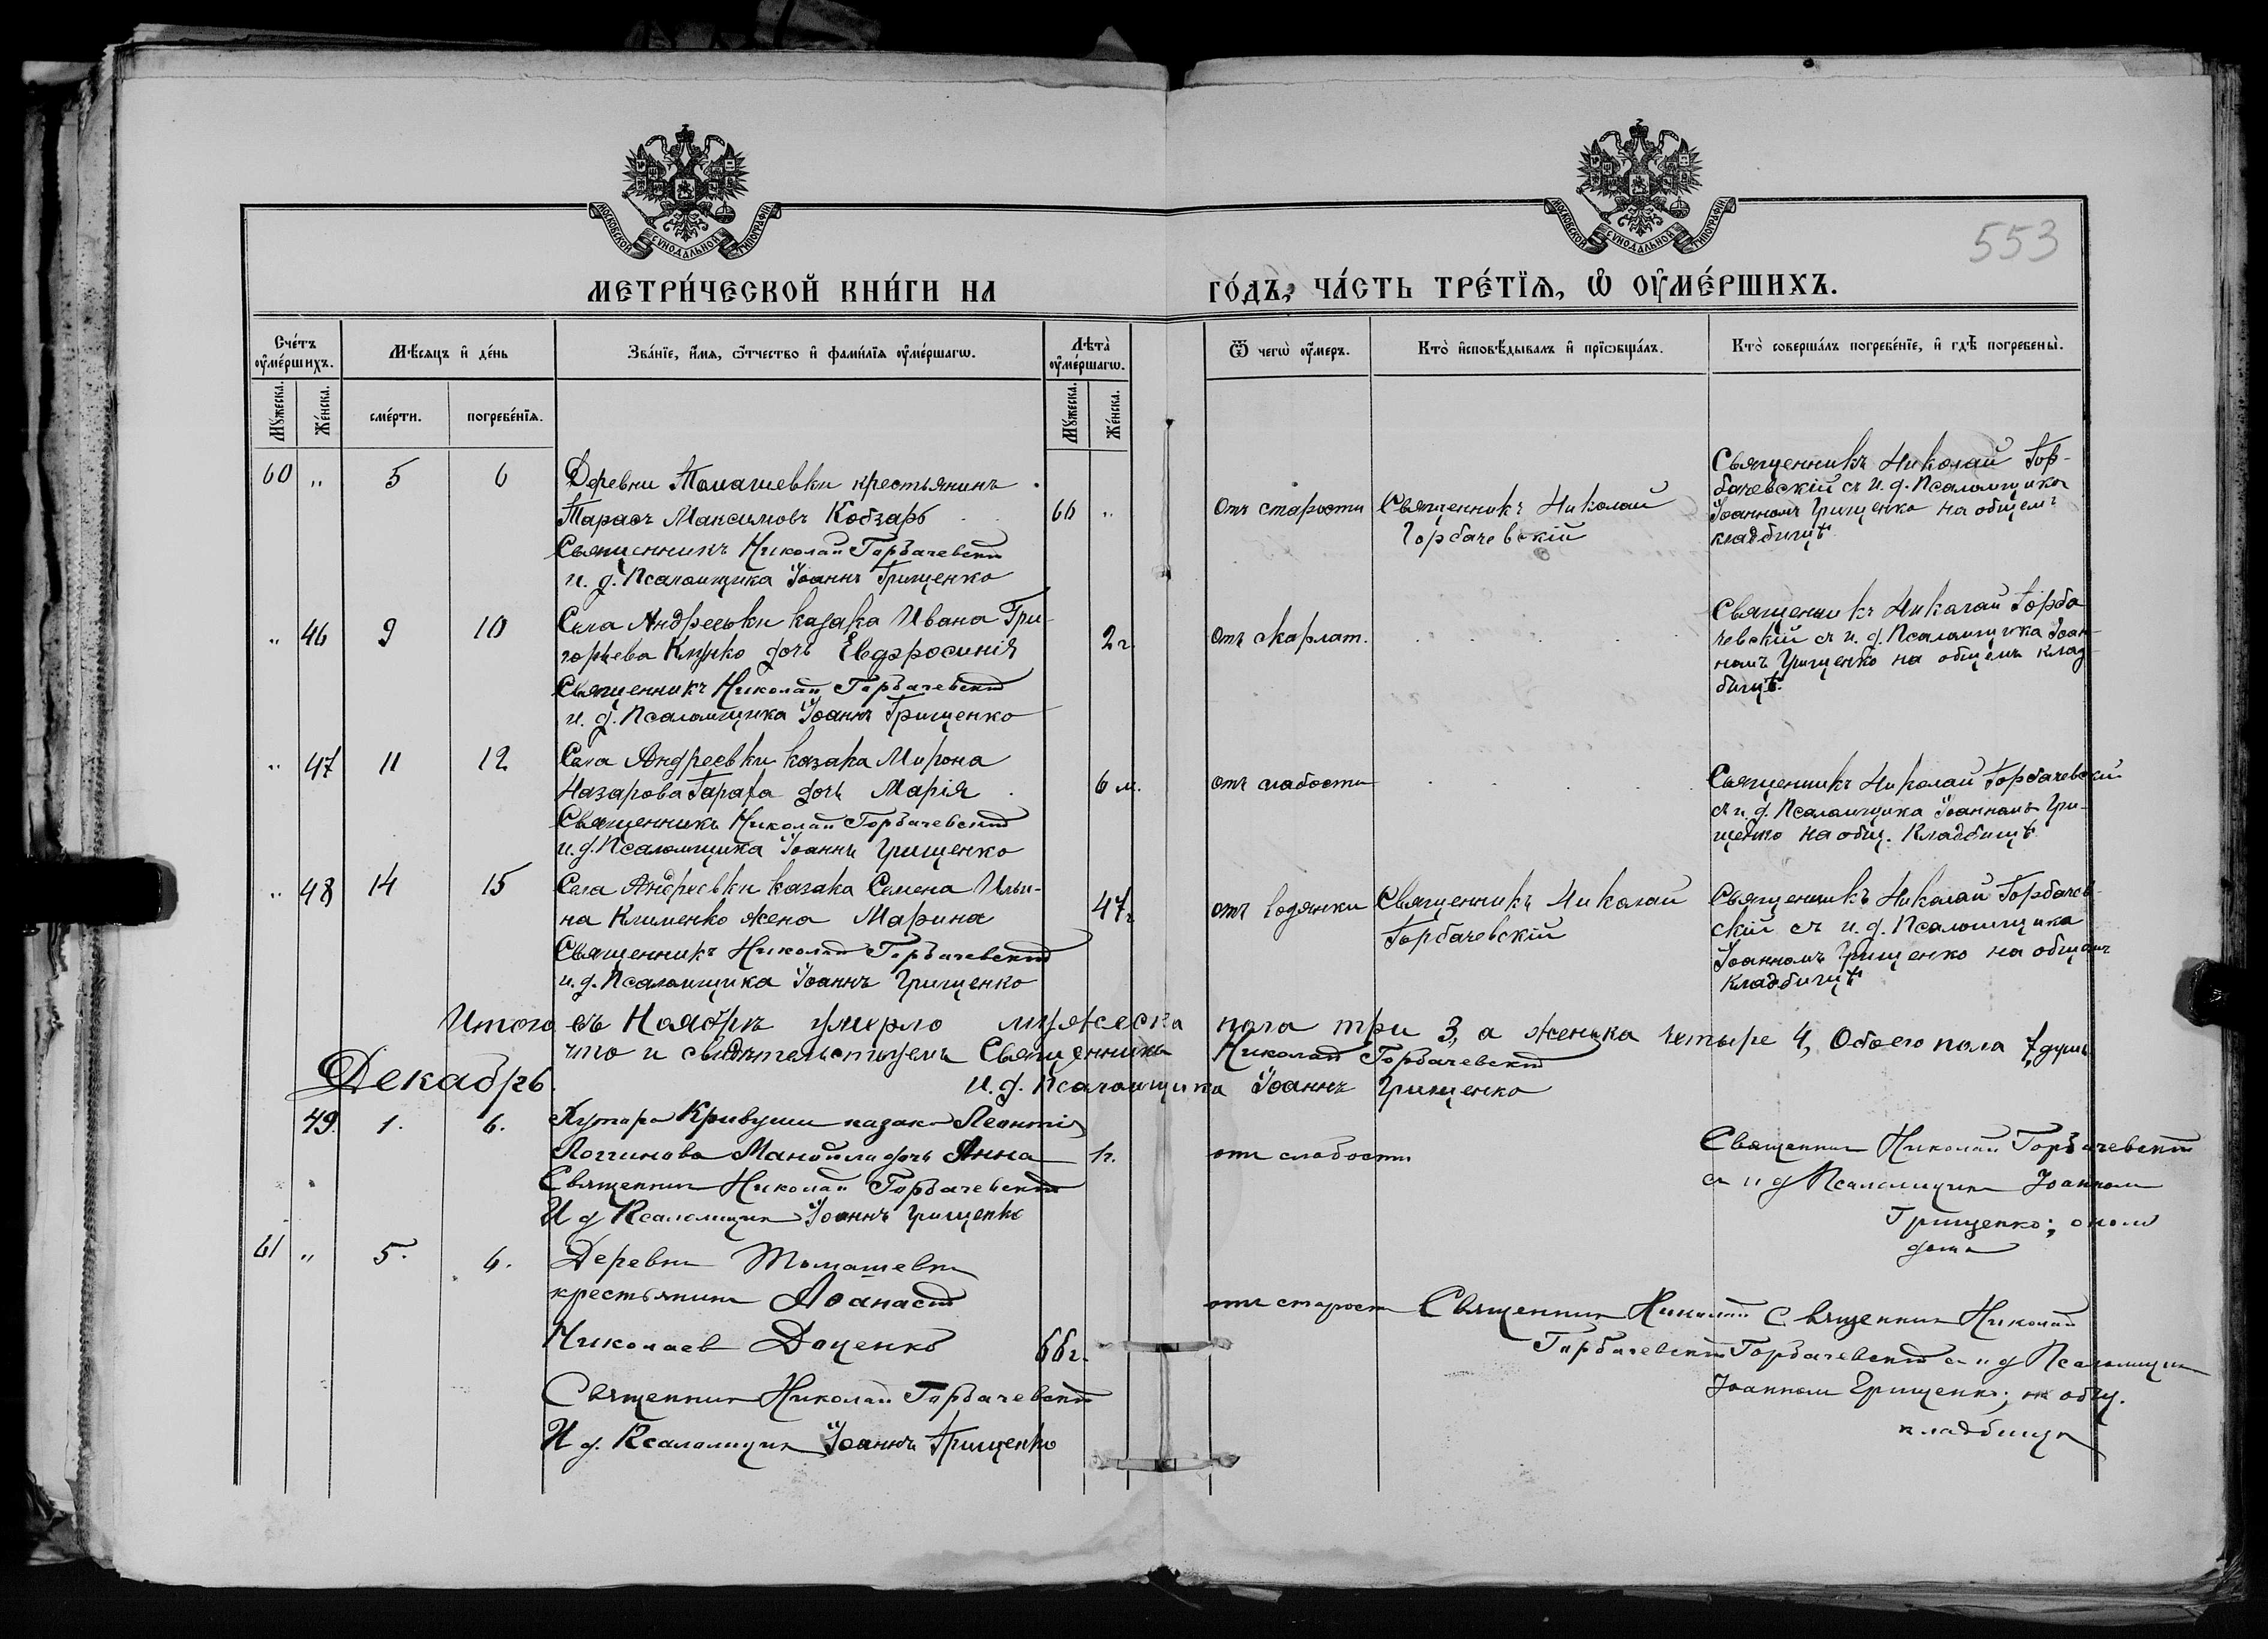 МОСКОВСКОЙ СѴНОДАЛЬНОЙ ТИПОГРАФІИ.
МОСКОВСКОЙ СѴНОДАЛЬНОЙ ТИПОГРАФІИ.
553
МЕТРИ́ЧЕСКОЙ КНИ́ГИ НА ГО́ДЪ, ЧА́СТЬ ТРЕ́ТЇѦ, Ѡ҆ ОУ҆МЕ́РШИХЪ.
Сче́тъ оу҆ме́ршихъ.
Мѣ́сѧцъ и҆ де́нь
Зва́нїе, и҆́мѧ, ѻ҆́тчество и҆ фами́лїѧ оу҆ме́ршагѡ.
Лѣта̀ оу҆ме́ршагѡ.
Ѿ чегѡ̀ оу҆́меръ.
Кто̀ и҆сповѣ́дывалъ и҆ прїѡбща́лъ.
Кто̀ соверша́лъ погребе́нїе, и҆ гдѣ̀ погребены̀.
Мꙋ́жеска. Же́нска. сме́рти. погребе́нїѧ. Мꙋ́жеска. Же́нска.
60 " 5 6 Деревни Томашевки крестьянинъ
Тарасъ Максимовъ Кобзарь 66 "
Священникъ Николай Горбачевскій
и. д. Псаломщика Іоаннъ Грищенко
Отъ старости
Священникъ Николай
Горбачевскій
Священникъ Николай Гор-
бачевскій съ и. д. Псаломщика
Іоанномъ Грищенко на общемъ
кладбищѣ
" 46 9 10 Села Андреевки казака Ивана Гри-
горьева дочь Евфросинія 2 г.
Священникъ Николай Горбачевскій
и. д. Псаломщика Іоаннъ Грищенко
Отъ скарлат.
Священникъ Николай Горба-
чевскій съ и. д. Псаломщика Іоан-
номъ Грищенко на общемъ клад-
бищѣ.
" 47 11 12 Села Андреевки казака Мирона
Назарова дочь Марія 6 м.
Священникъ Николай Горбачевскій
и. д. Псаломщика Іоаннъ Грищенко
отъ слабости
Священникъ Николай Горбачевскій
съ и. д. Псаломщика Іоанномъ Гри-
щенко на общ. Кладбищѣ
" 48 14 15 Села Андреевки казака Семена Ильи-
на Клименко жена Марина 47 г.
Священникъ Николай Горбачевскій
и. д. Псаломщика Іоаннъ Грищенко
отъ водянки
Священникъ Николай
Горбачевскій
Священникъ Николай Горбачев-
скій съ и. д. Псаломщика
Іоанномъ Грищенко на общемъ
кладбищѣ
Итого въ Ноябрѣ умерло мужеска пола три 3, а женска четыре 4, Обоего пола 7 душъ
что и свидѣтельствуемъ Священникъ Николай Горбачевскій
И. д. Псаломщика Іоаннъ Грищенко
Декабрь.
49. 1. 6. Хутора Кривуши казака Леонтія
Логгинова дочь Анна 1 г.
Священник Николай Горбачевскій
И д Псаломщик Іоаннъ Грищенко
отъ слабости
Священник Николай Горбачевскій
съ и д Псаломщик Іоанном
Грищенко; около
дома
61 " 5. 6. Деревни Томашевки
крестьянин Аѳанасій
Николаев Доценко 66 г.
Священник Николай Горбачевскій
И д. Псаломщик Іоаннъ Грищенко
отъ старост
Священник Николай
Горбачевскій
Священник Николай
Горбачевскій съ и д Псаломщик
Іоанном Грищенко; на общ.
кладбищѣ